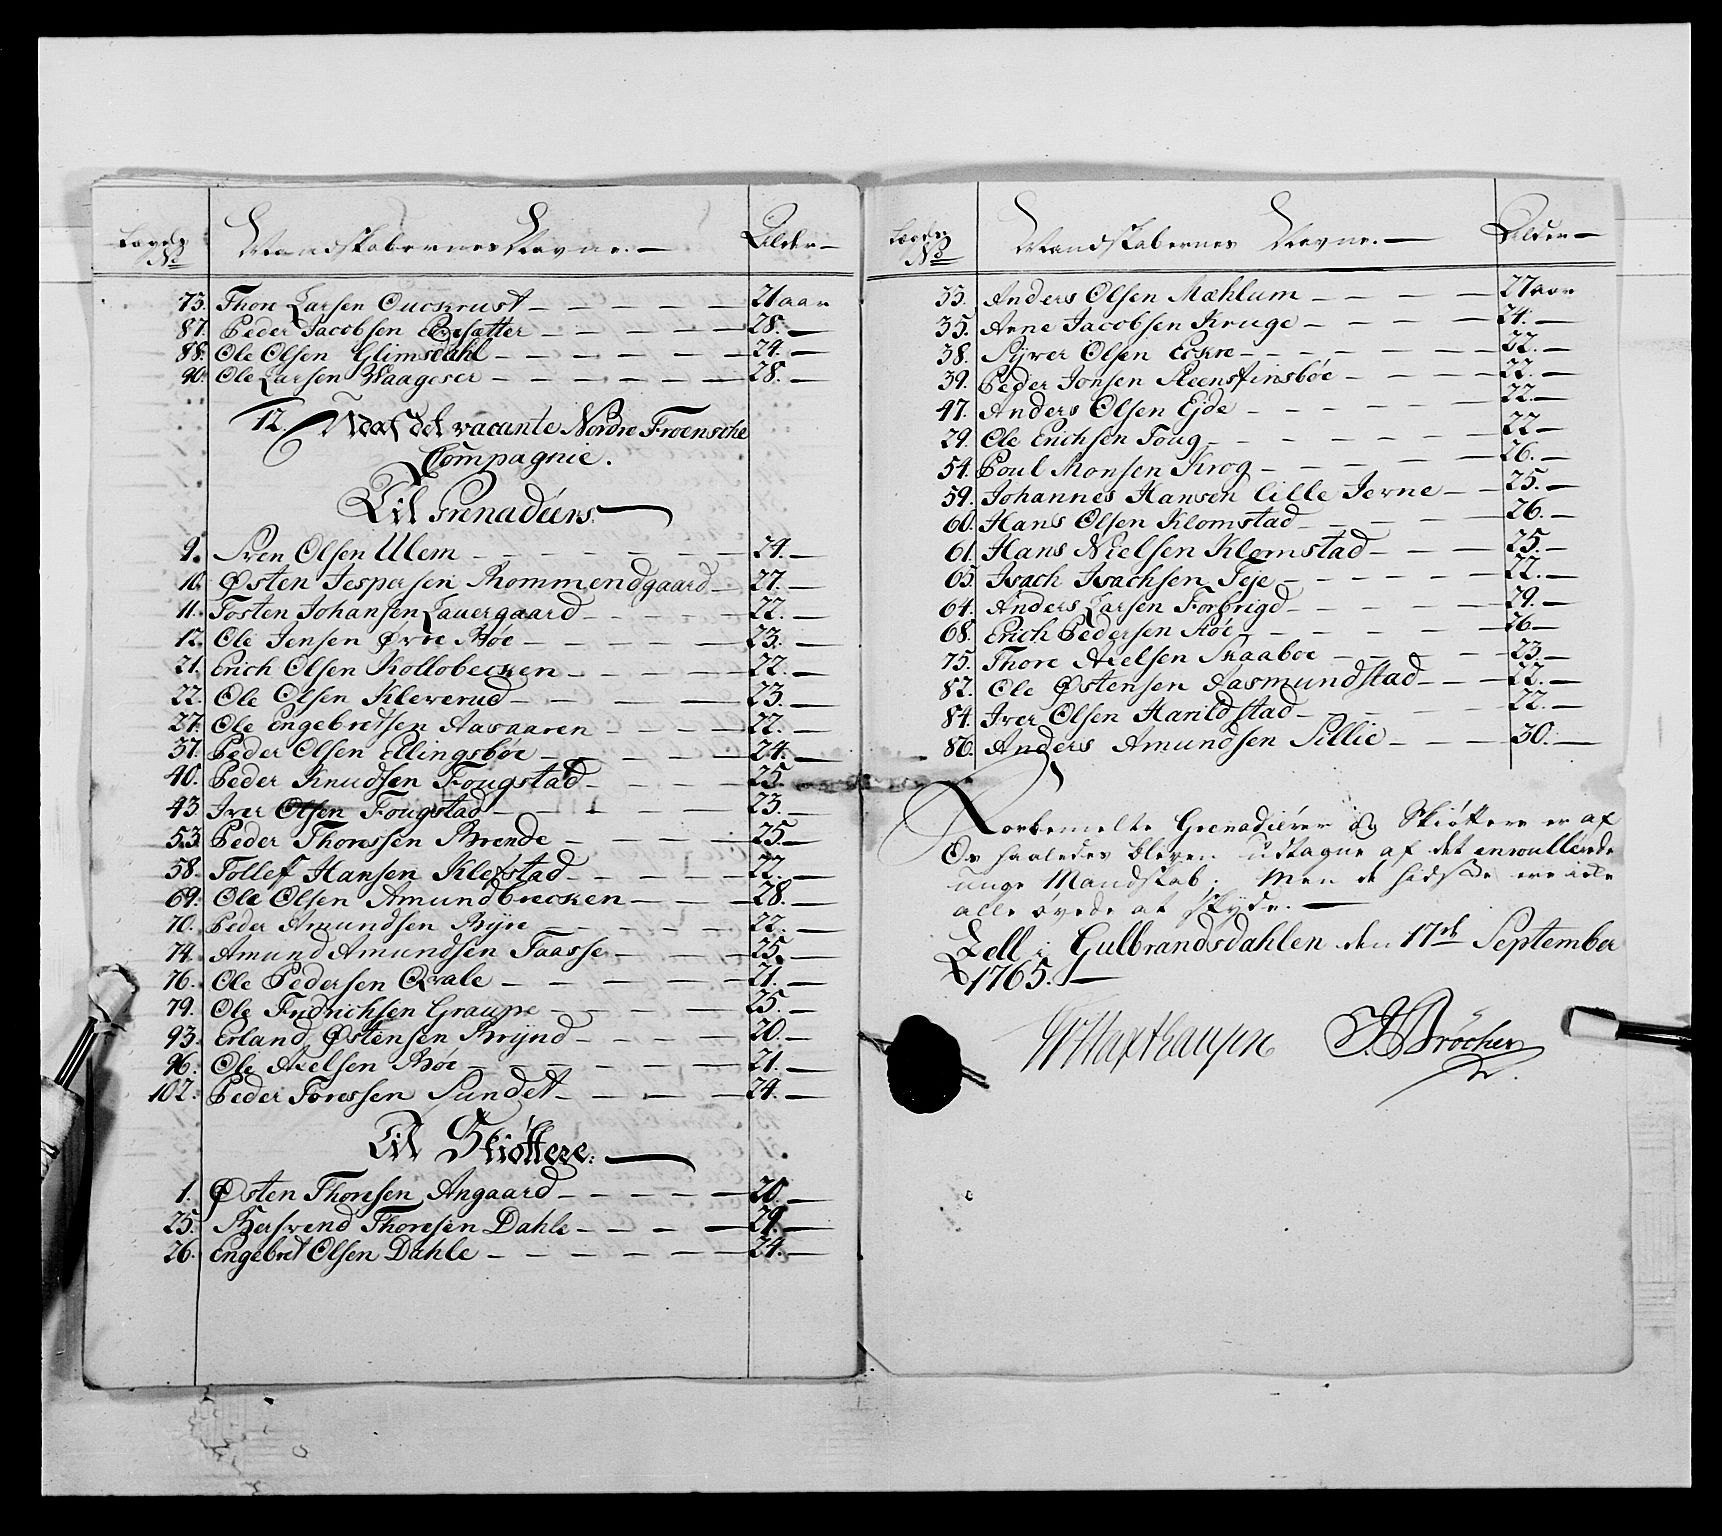 Lægds No Mandskabernes Navne. — Alder —
73. Thore Larsen Quokrust — 21 aar
87. Peder Jacobsen Eggesætter — 28. —
88. Ole Olsen Glimsdahl — 24. —
90. Ole Larsen Waageser — 28. —
12. Ved det vacante Nordre Froensche
Compagnie.
Til Grenadeers. —
9. Sven Olsen Ulem — 24. —
10. Østen Jespersen Rommendgaard — 27. —
11. Tosten Johansen Lauergaard — 22. —
12. Ole Jensen Øvre Moe — 23. —
21. Erich Olsen Kollobecken — 22. —
22. Ole Olsen Kleverud — 23. —
27. Ole Engebretsen Aasaaren — 22. —
37. Peder Olsen Ellingsbøe — 24. —
40. Peder Knudsen Fougstad — 25. —
43. Iver Olsen Fougstad — 23. —
53. Peder Thoressen Brende — 25. —
58. Tollef Hansen Klefstad — 22. —
69. Ole Olsen Amundbrecken — 28. —
70. Peder Amundsen Bye — 22. —
74. Amund Amundsen Taasse — 25. —
76. Ole Pedersen Qvale — 21. —
79. Ole Fridrichsen Graupe — 25. —
93. Erland Østensen Brynd — 20. —
96. Ole Axelsen Bøe — 21. —
102. Peder Toressen Sundet — 24. —
Til Skiøttere. —
1. Østen Thoresen Angaard — 20. —
25. Bersvend Thoresen Dahle — 29. —
26. Engebret Olsen Dahle — 24. —
Lægds No Mandskabernes Navne. — Alder —
33. Anders Olsen Mæhlum — 27 aar
35. Arne Jacobsen Kruge — 21. —
38. Syver Olsen Eckre — 32. —
39. Peder Jonsen Steenstinsbøe — 22. —
47. Anders Olsen Ejde — 22. —
29. Ole Erichsen Toug — 22 —
54. Poul Monsen Krog — 26. —
59. Johannes Hansen lille Jerne — 25. —
60. Hans Olsen Klomstad — 26. —
61. Hans Nielsen Klomstad — 25. —
65. Isach Isachsen Teje — 22. —
64. Anders Larsen Forbrigd — 29. —
68. Erich Pedersen Støe — 26 —
75. Thore Axelsen Skaaboe — 23. —
82. Ole Østensen Aasmundstad — 22. —
84. Iver Olsen Harildstad — 22. —
86. Anders Amundsen Sillie — 30. —
Forbemelte Grenadierer og Skiøttere er af
Os saaledes bleven udtagne af det enroullerede
unge Mandskab; Men de sidste ere icke
alle øvede at skyde. —
Zell i Gulbrandsdahlen den 17de September
1765. —
Haxthausen JBröcher